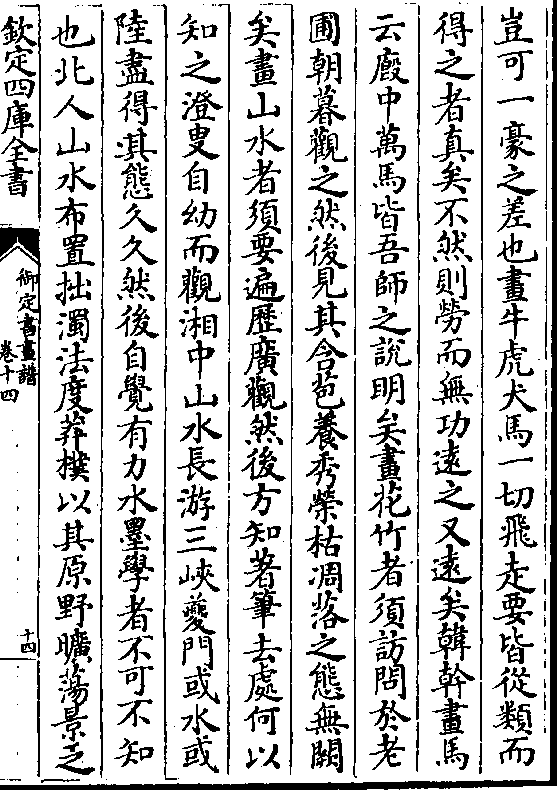 豈可一豪之差也畫牛虎犬馬一切飛走要皆從類而
得之者真矣不然則勞而無功遠之又遠矣韓幹畫馬
云廄中萬馬皆吾師之說明矣畫花竹者須訪問於老
圃朝暮觀之然後見其含苞養秀榮枯凋落之態無闕
矣畫山水者須要遍歷廣觀然後方知著筆去處何以
知之澄叟自幼而觀湘中山水長游三峽夔門或水或
陸盡得其態久久然後自覺有力水墨學者不可不知
也北人山水布置拙濁法度莽樸以其原野曠蕩景乏
欽定四庫全書
御定書畫譜
卷十四
十四